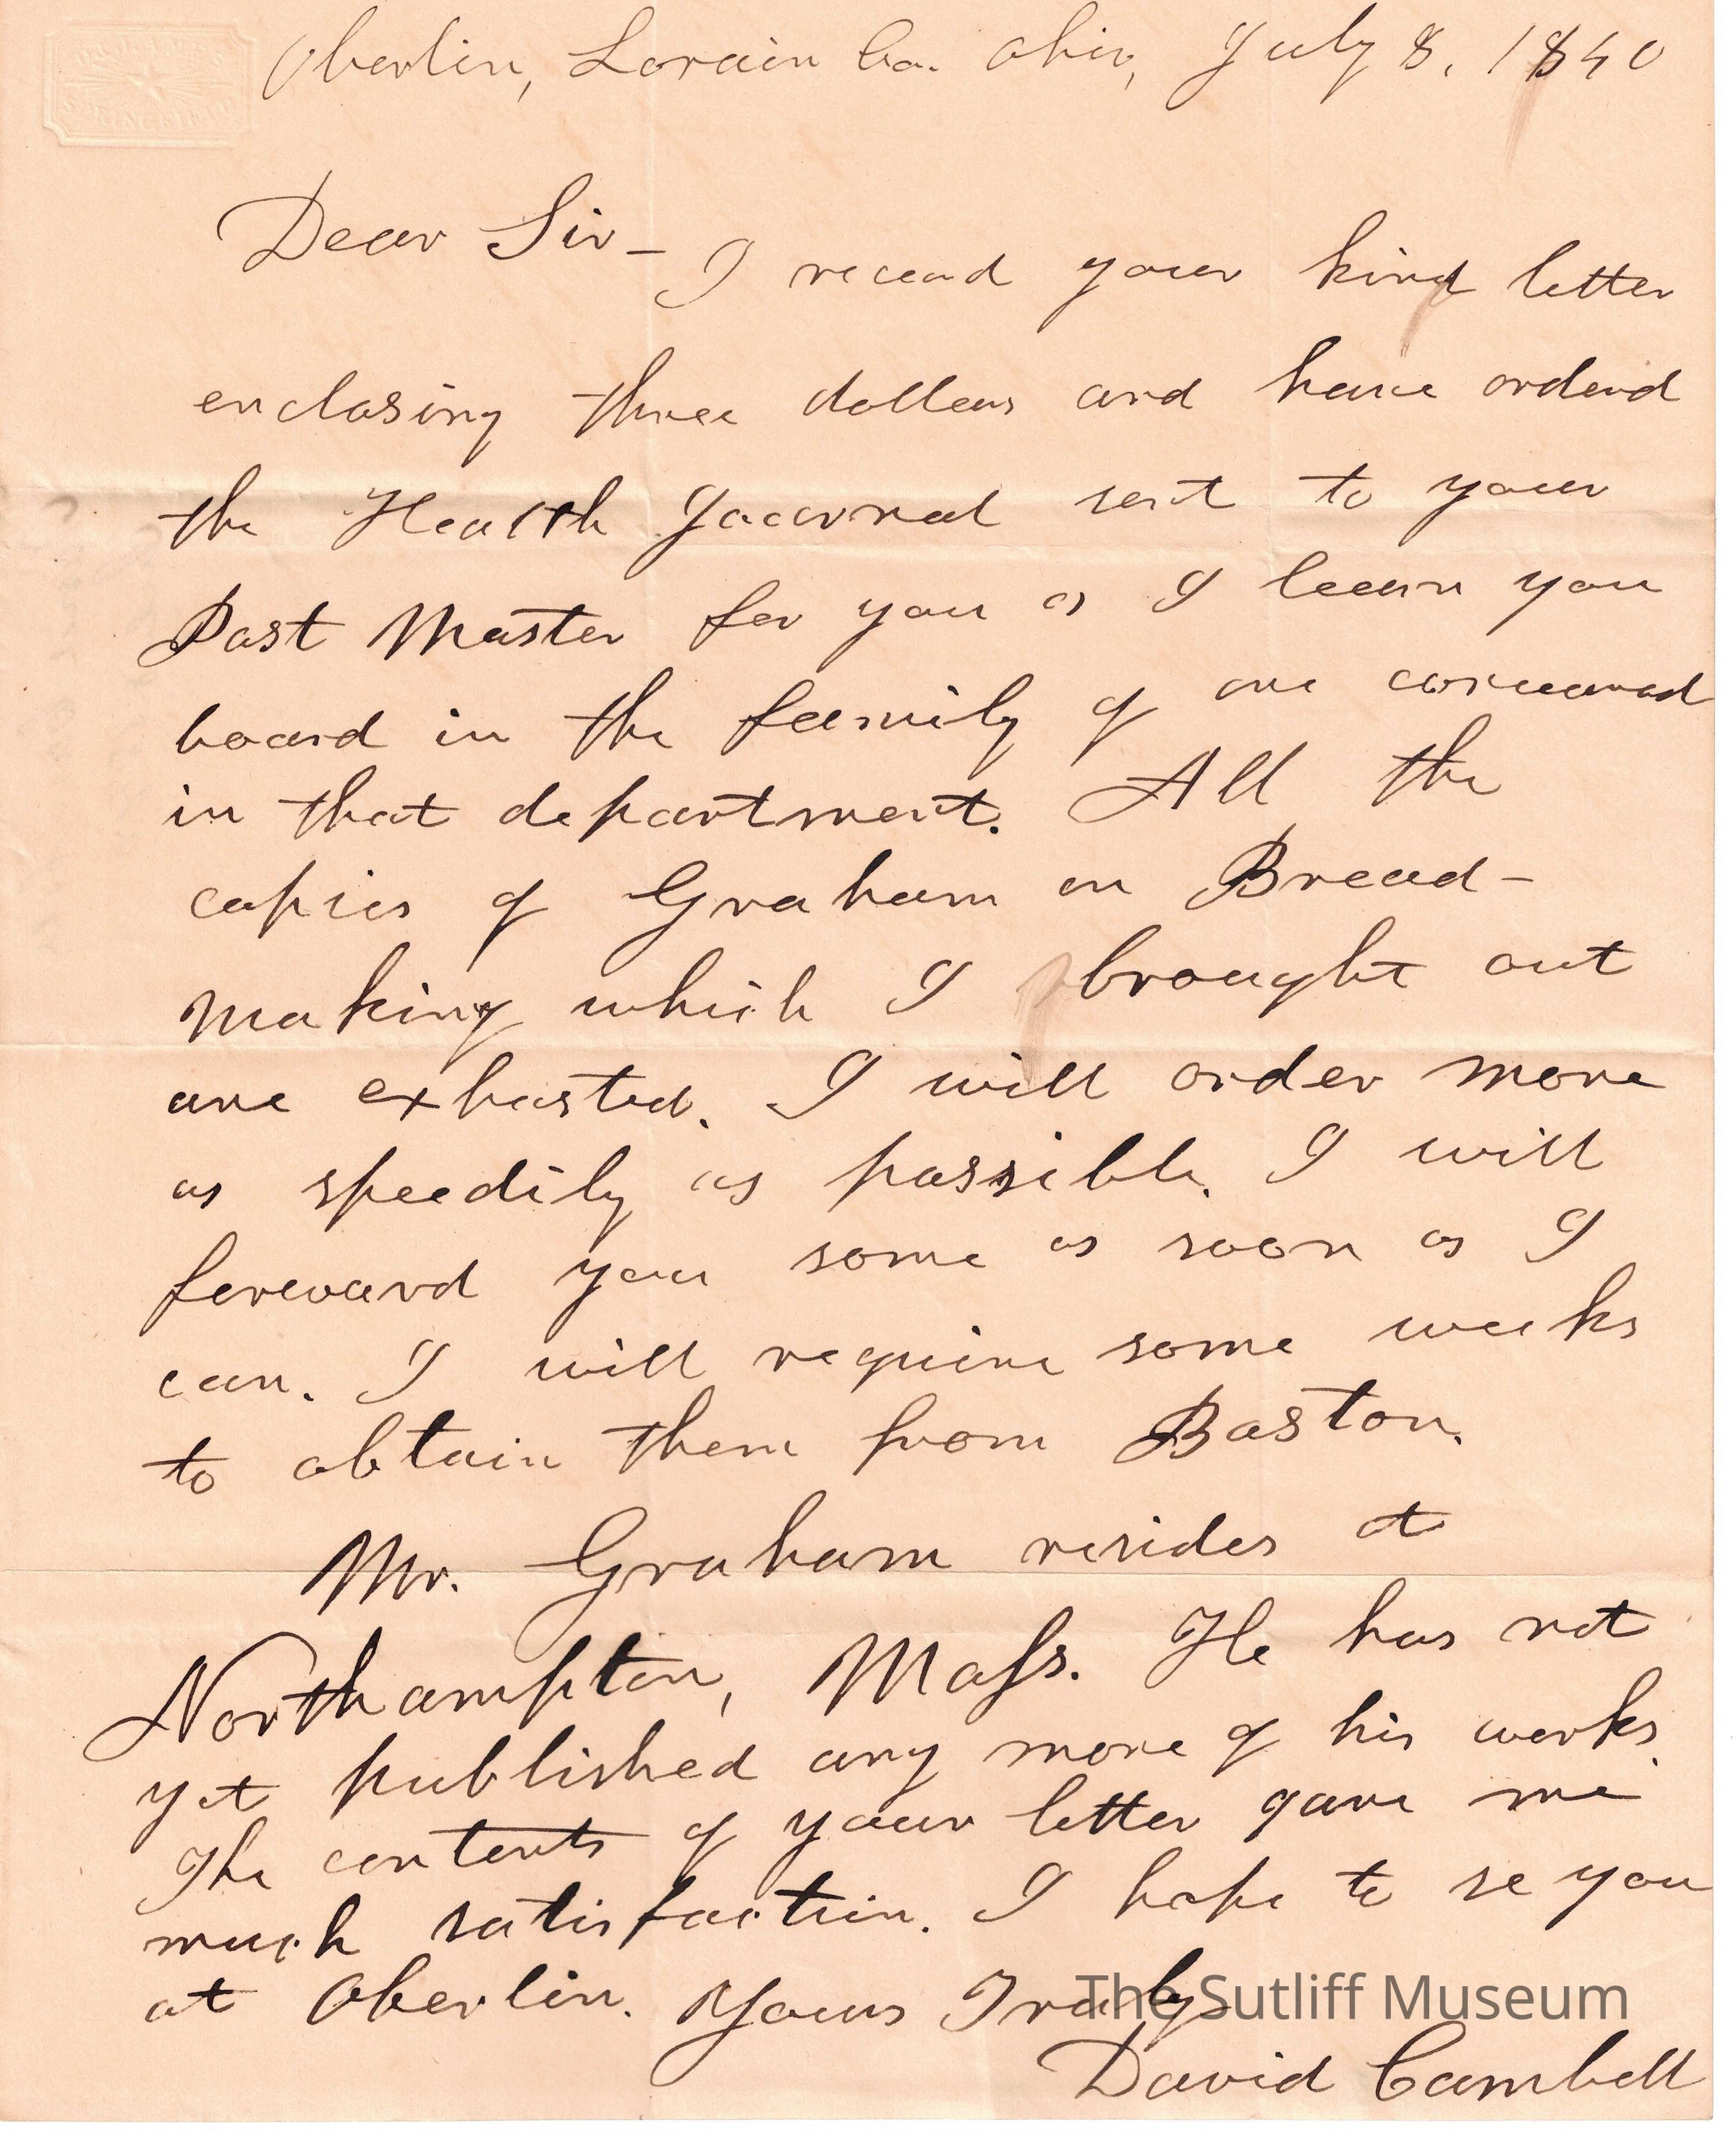 Oberlin, Lorain Co. Ohio, July 8, 1840
Dear Sir- I recead your kind letter
enclosing three dollars and have orderd
the Health Journal sent to your
Post Master for you as I learn you
board in the family of one
in that department. All the
copies of Graham on Bread-
making which I brought out
are exhasted. I will order more
as speedily as possible. I will
forward you some as soon as I
can. I will require some weeks
to obtain them from Boston.
Mr. Graham resides at
Northampton, Mass. He has not
yet published any more of his works.
The contents of your letter gave me
much satisfaction. I hope to se you
at Oberlin. Yours Truly
The Sutliff Museum
David Cambell